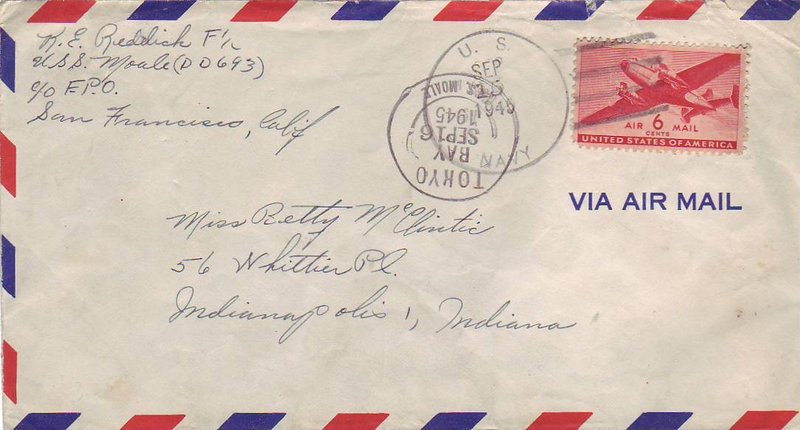 R. E. Reddick F 1/c
U.S.S. Moale (DD693)
c/o F.P.O.
San Francisco, Calif
U. S.
SEP
15
1945
NAVY
TOKYO
BAY
SEP 16
1945
U.S.S. MOALE
AIR 6 MAIL
CENTS
UNITED STATES OF AMERICA
VIA AIR MAIL
Miss Betty McClintic
56 Whittier Pl.
Indianapolis 1, Indiana